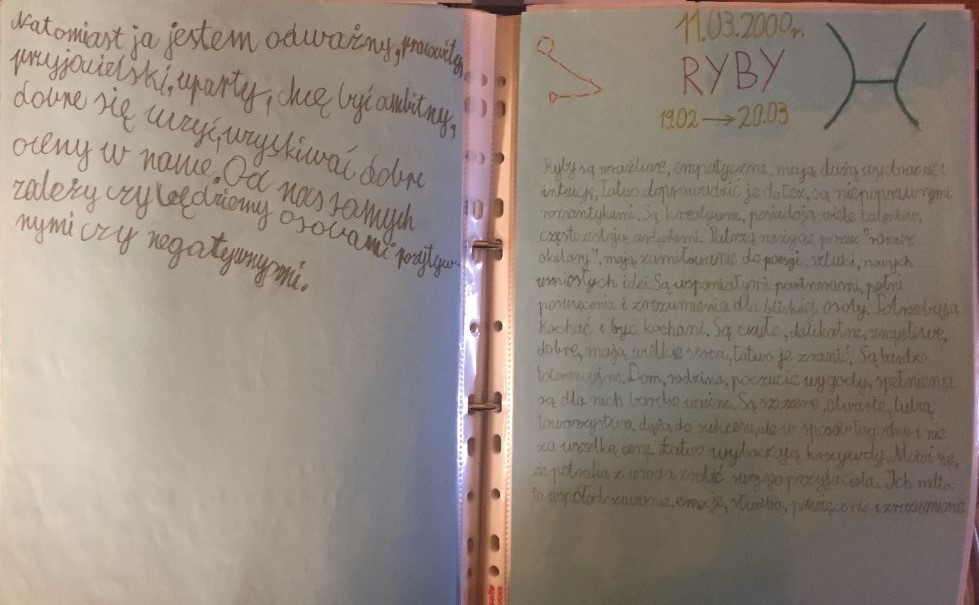 Natomiast ja jestem odważny, pracowity,
przyjacielski, uparty, chcę być ambitny,
dobre się uczyć, uzyskiwać dobre
oceny w nauce. Od nas samych
zależy czy będziemy osobami pozytyw-
nymi czy negatywnymi.
11.03.2000r.
RYBY
19.02 → 20.03
Ryby są wrażliwe, empatyczne, mają dużą wyobraźnię i
intuicję, łatwo doprowadzić je do łez, są niepoprawnymi
romantykami. Są kreatywne, posiadają wiele talentów,
często zostają artystami. Patrzą na życie przez "różowe
okulary", mają zamiłowanie do poezji, sztuki, nowych
wzniosłych idei. Są wspaniałymi partnerami, pełni
poświęcenia i zrozumienia dla bliskiej osoby. Potrzebują
kochać i być kochani. Są czułe, delikatne, zmysłowe,
dobre, mają wielkie serca, łatwo je zranić. Są bardzo
tolerancyjne. Dom, rodzina, poczucie wygody, spełnienia
są dla nich bardzo ważne. Są szczere, otwarte, lubią
towarzystwo, dążą do sukcesu, ale w sposób łagodny i nie
za wszelką cenę. Łatwo wybaczają krzywdy. Mówi się,
że potrafią z wroga zrobić swojego przyjaciela. Ich
to współodczuwanie, emocje, służba, poświęcenie i zrozumienie